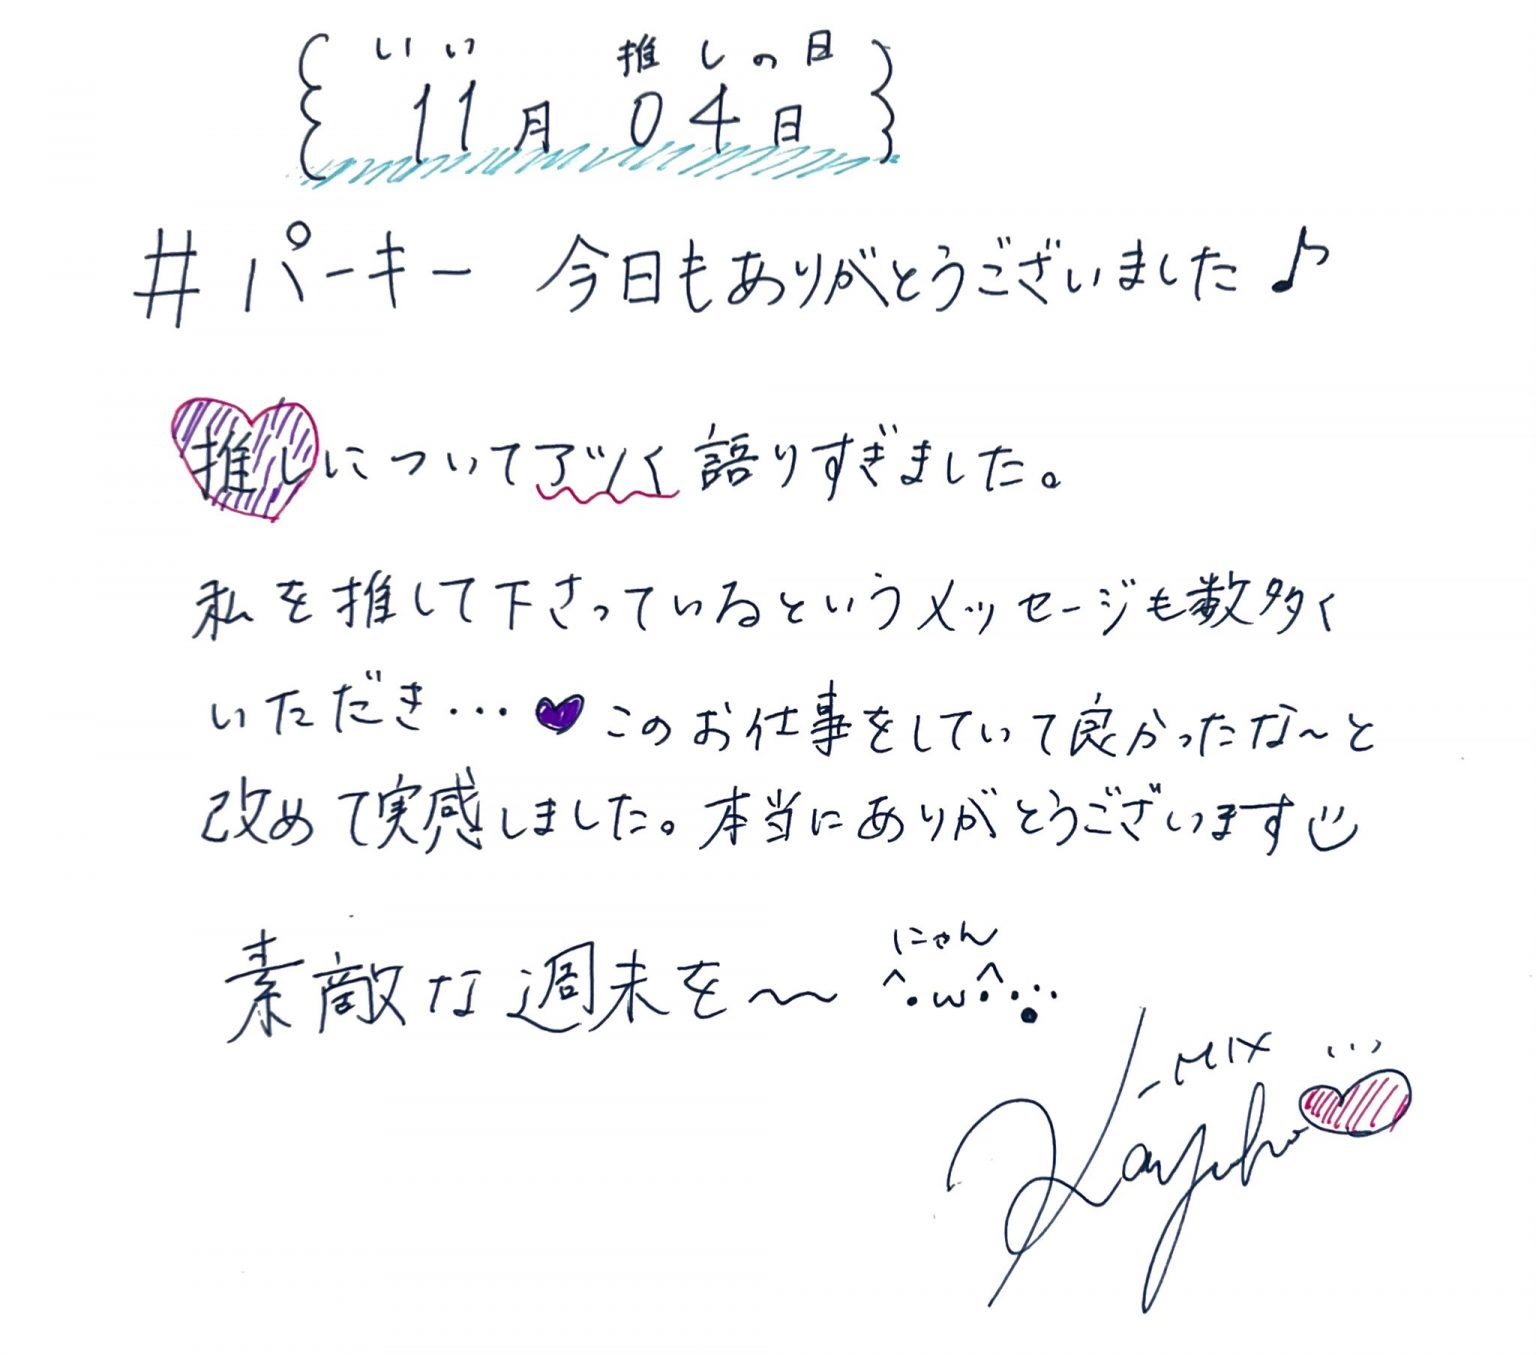 いい 推しの日
11月 04日
#パーキー 今日もありがとうございました♪
推しについてアツく語りすぎました。
私を推して下さっているというメッセージも数多く
いただき…♥このお仕事をしていて良かったな〜と
改めて実感しました。本当にありがとうございます
素敵な週末を〜〜
にゃん
^•ω•^
-MIX
Kayoko